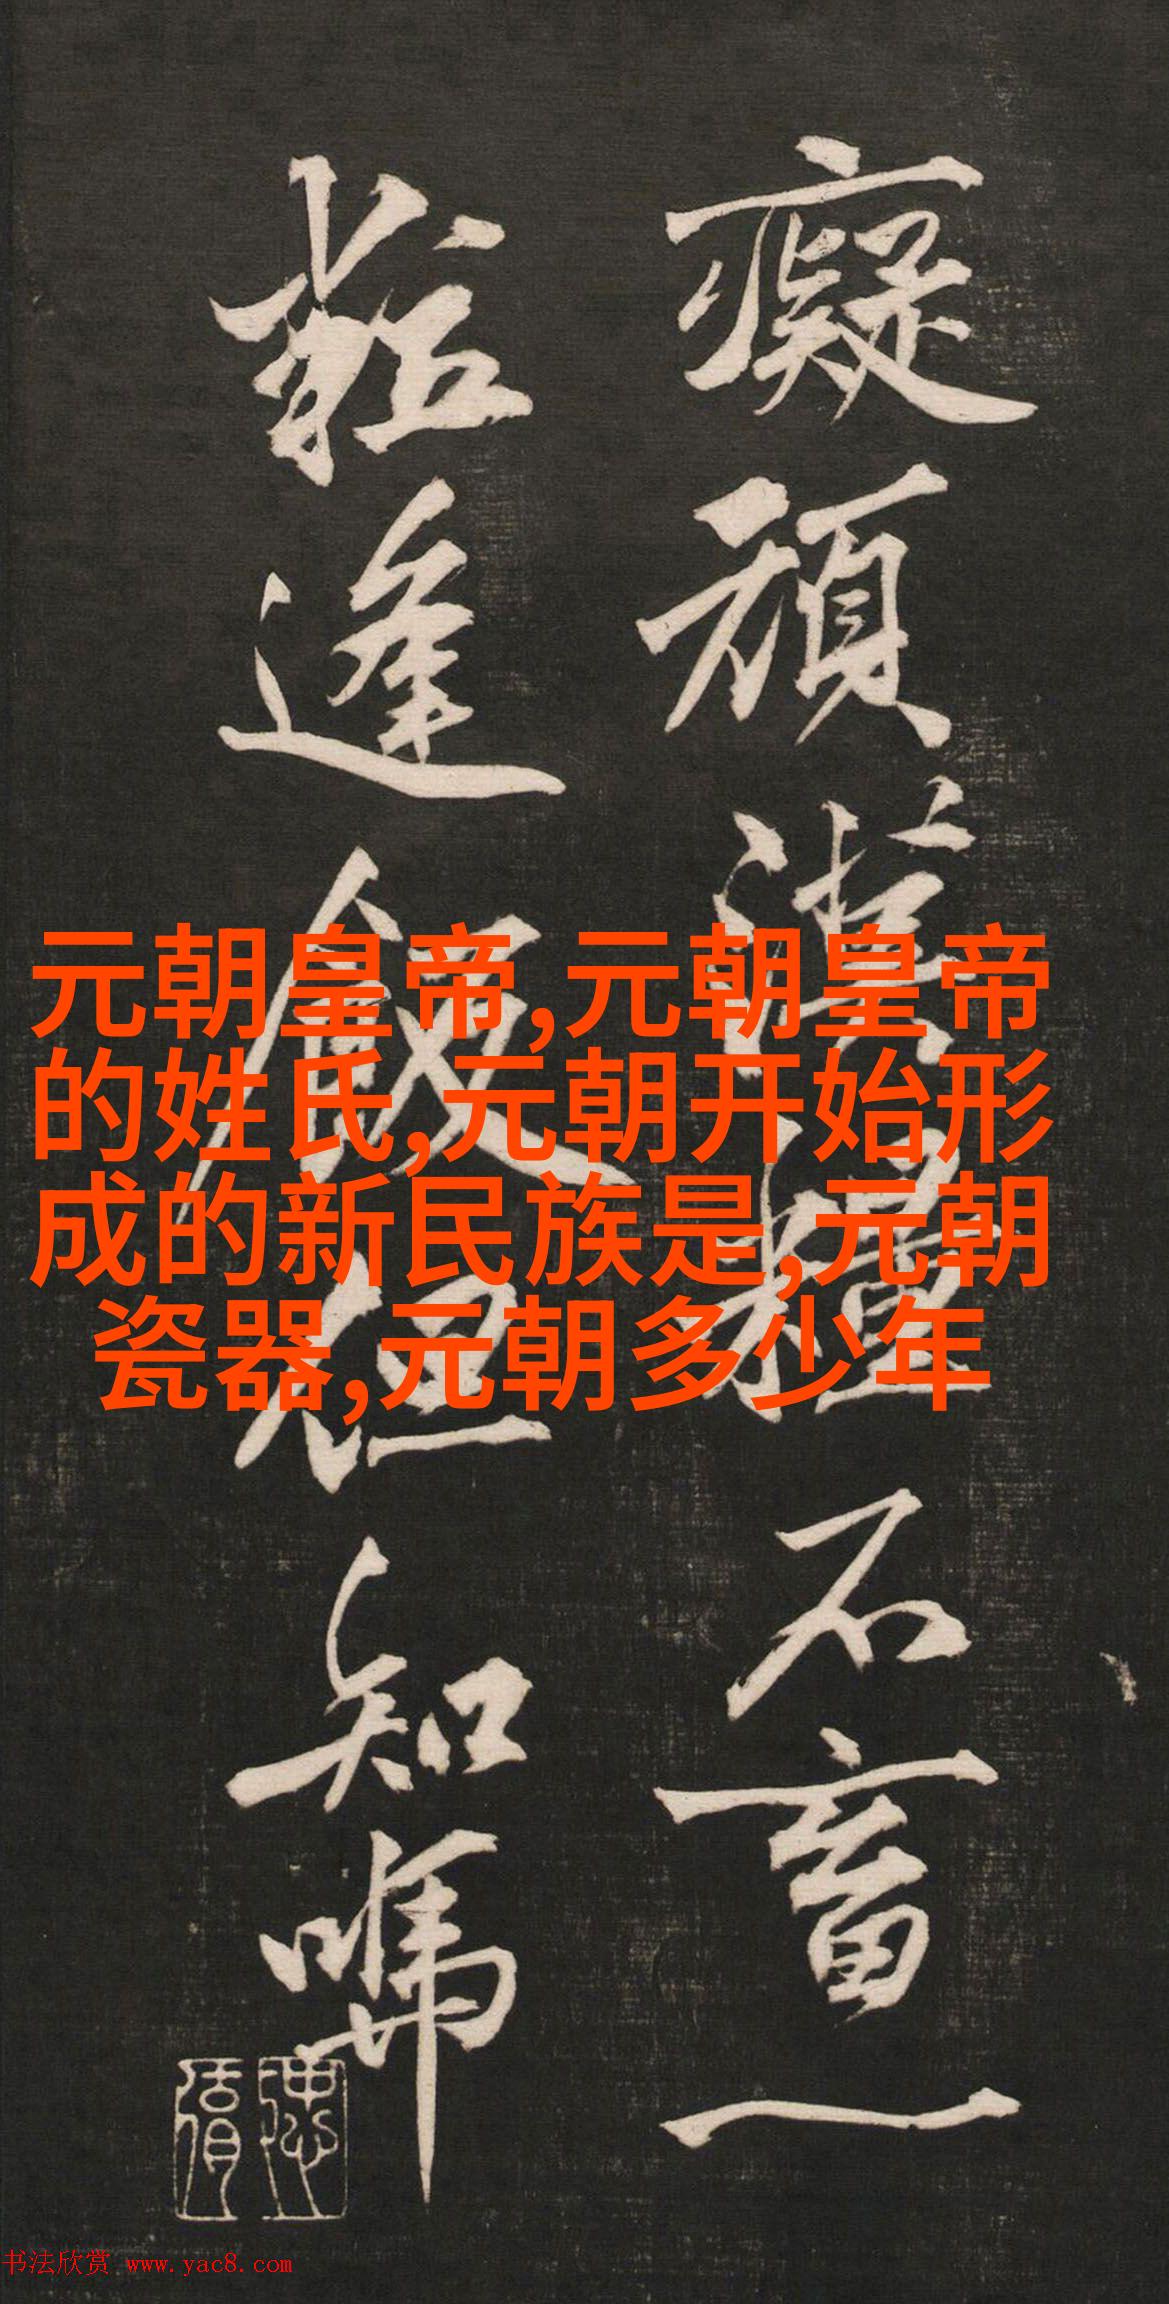 癡頑漢糧不畜一
粒逢飯但知嚼
元朝皇帝,元朝皇帝
的姓氏,元朝开始形
成的新民族是,元朝
瓷器,元朝多少年
书法欣赏 www.yac8.com